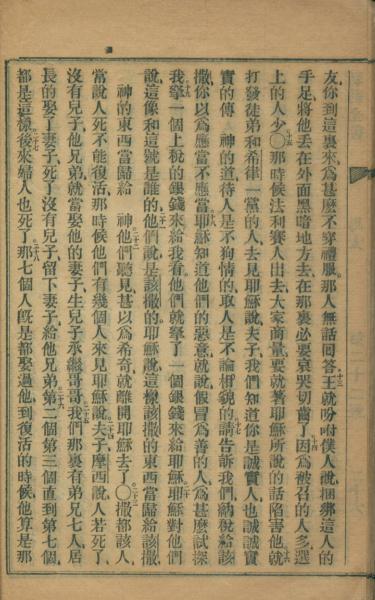 友你到這裏來爲甚麽不穿禮服那人無話回答十三王就吩咐僕人說捆綁這人的
手足將他丟在外面黑暗地方去在那裏必要哀哭切齒了十四因爲被召的人多選
上的人少○十五那時候法利賽人出去大家商量要就著耶穌所說的話陷害他就十六
打發徒弟和希律一黨的人去見耶穌說夫子我們知道你是誠實人也誠誠實
實的傳　神的道待人是不狥情的取人是不論相貌的十七請告訴我們納稅給該
撒你以爲應當不應當十八耶穌知道他們的惡意就說假冒爲善的人爲甚麽試探
我十九拏一個上稅的銀錢來給我看他們就拏了一個銀錢來給耶穌二十耶穌對他們
說這像和這號是誰的二十一他們說是該撒的耶穌說這樣該撒的東西當歸給該撒
　神的東西當歸給　神二十二他們聽見甚以爲希奇就離開耶穌去了○二十三撒都該人
當說人死不能復活那時候他們有幾個人來見耶穌說二十四夫子摩西說人若死了
沒有兒子他兄弟就當娶他的妻子生兒子承繼哥哥二十五我們那裏有弟兄七人居
長的娶了妻子死了沒有兒子留下妻子給他兄弟二十六第二個第三個直到第七個
都是這樣二十七後來婦人也死了二十八那七個人旣是都娶過他到復活的時候他算是那